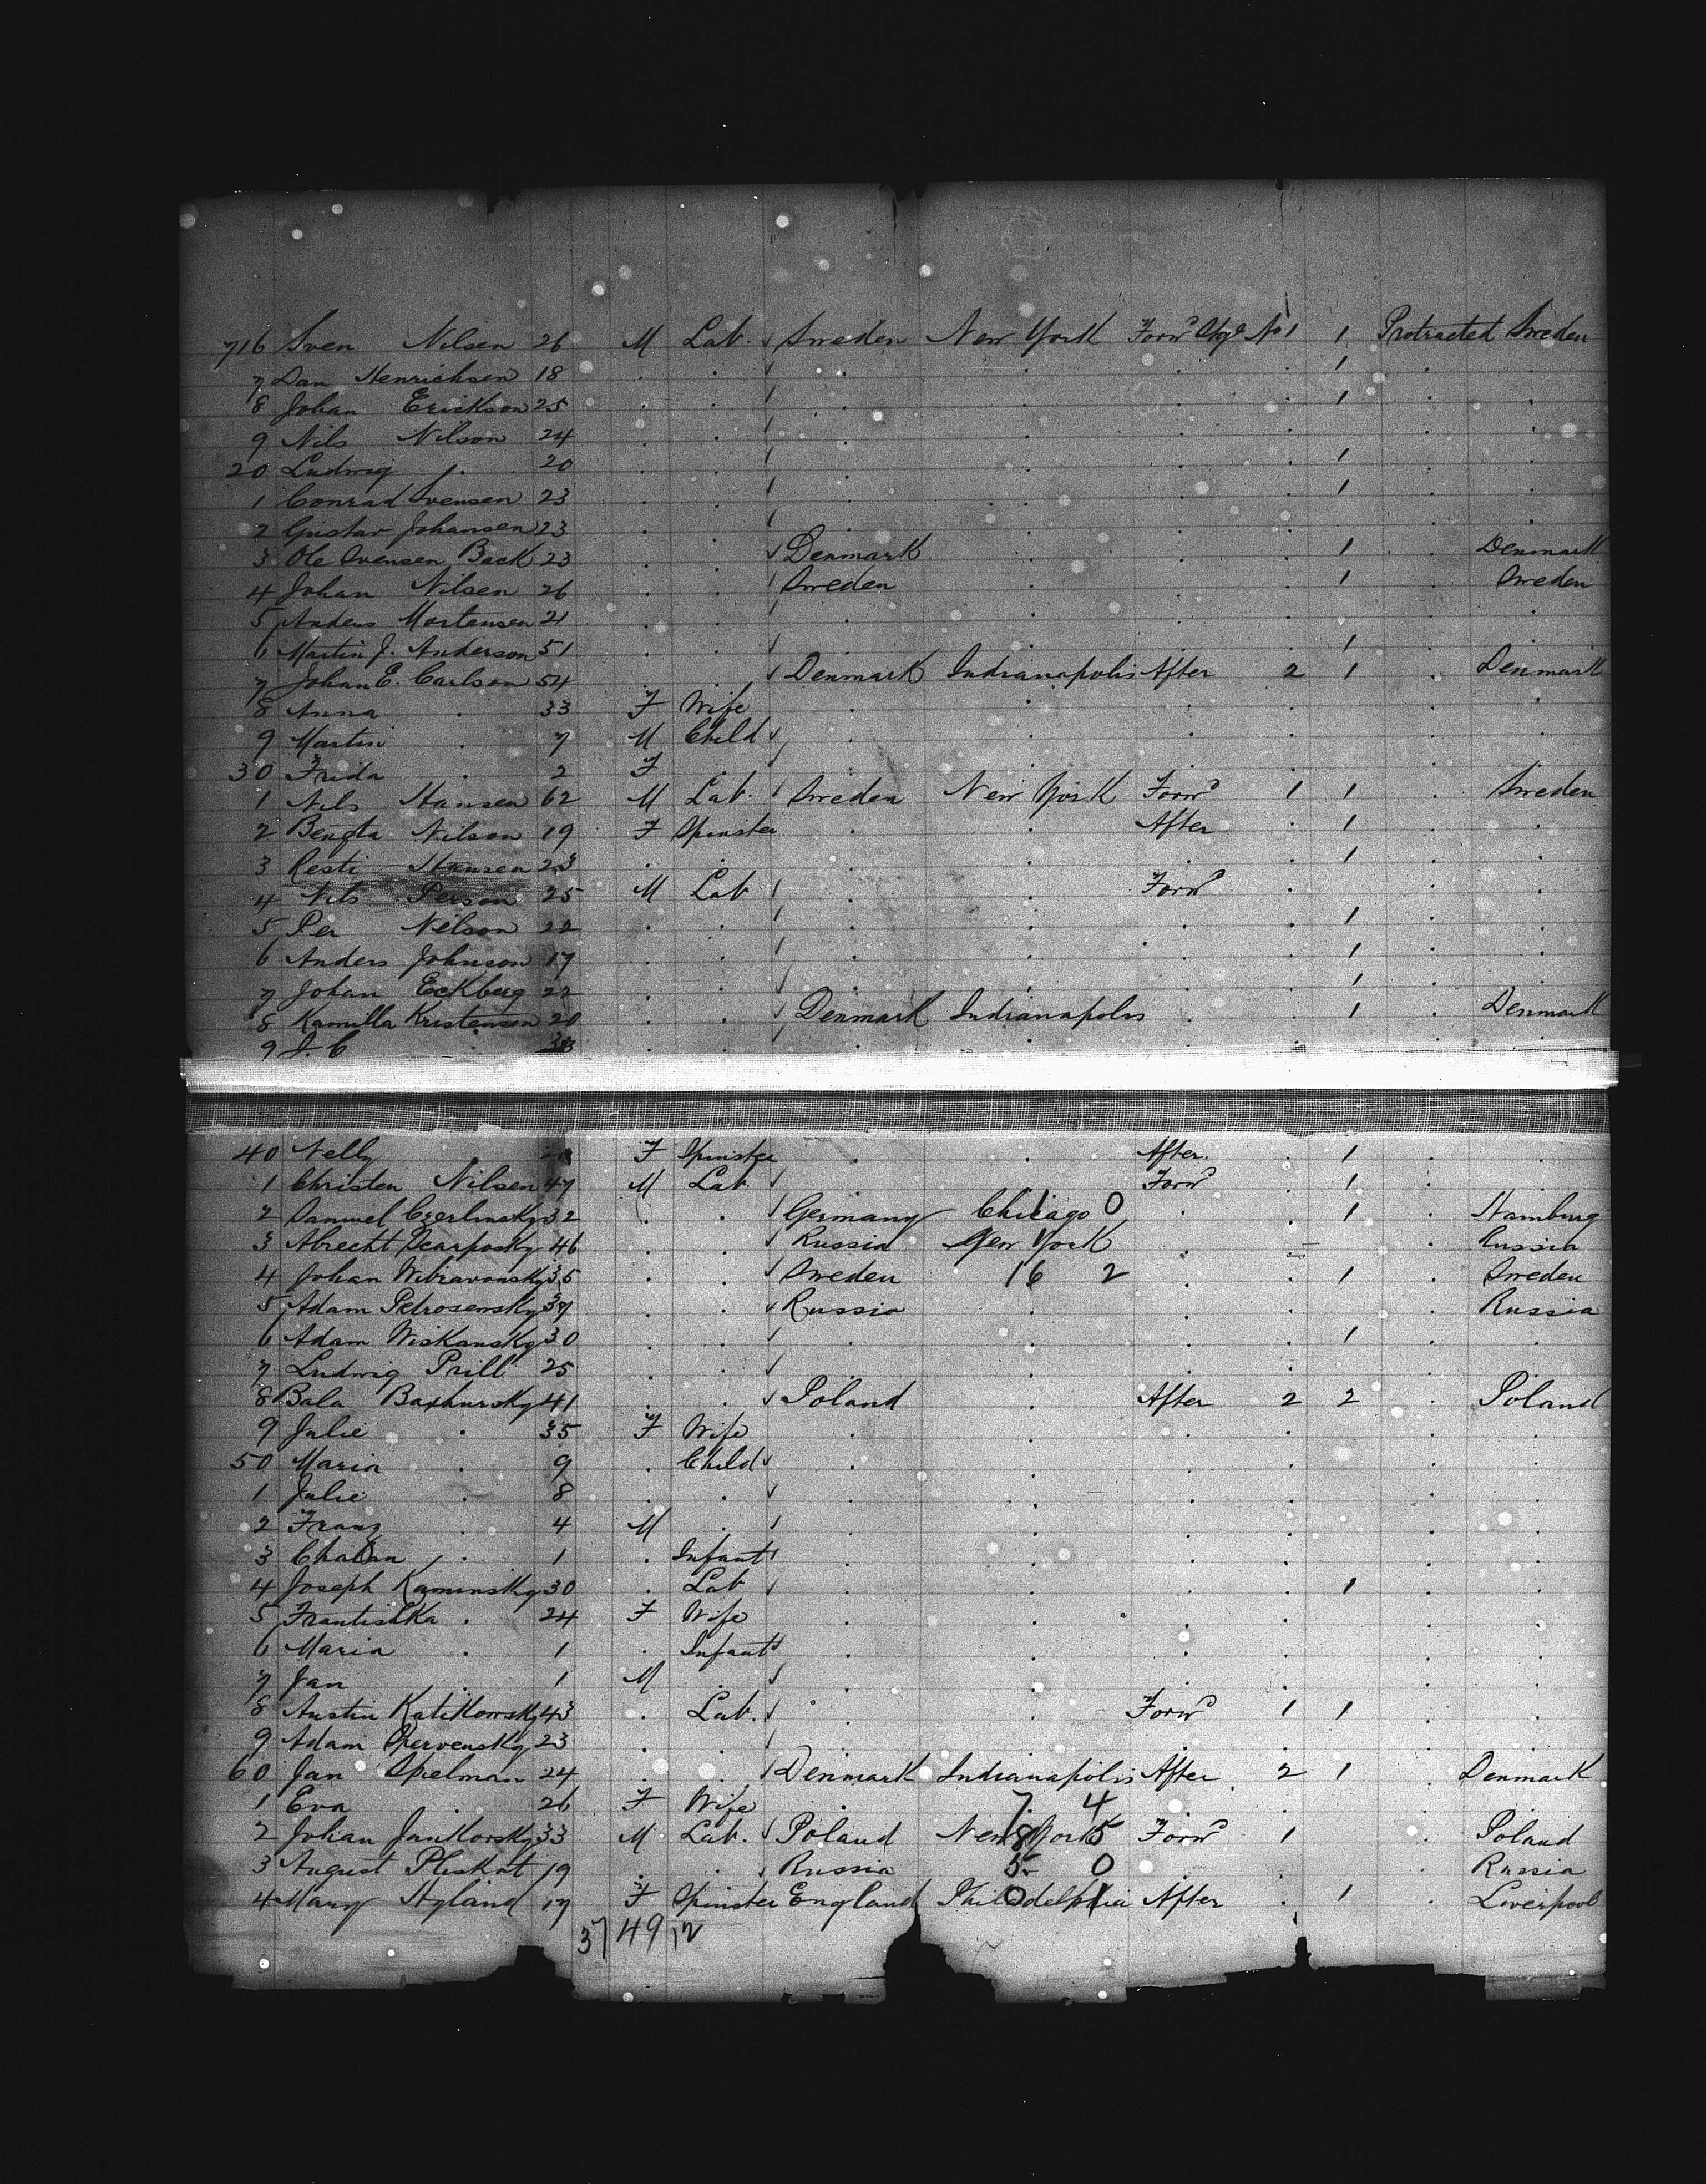 716 Sven Nilsen 26 M Lab. Sweden New York Forwd Stge No 1 1 Protracted Sweden
7 Dan Henrichsen 18 . . . . . . 1 . .
8 Johan Erickson 25 . . . . . . 1 . .
9 Nils Nilson 24 . . . . . . . .
20 Ludwig . 20 . . . . . . 1 . .
1 Conrad Svensen 23 . . . . . . 1 . .
2 Gustav Johansen 23 . . . . . . . .
3 Ole Svensen Back 23 . . Denmark . . . 1 . Denmark
4 Johan Nilsen 26 . . Sweden . . . 1 . Sweden
5 Anders Mortensen 21 . . . . . . . .
6 Martin J. Anderson 51 . . . . . . 1 . .
7 Johan E. Carlson 54 . . Denmark Indianapolis After 2 1 . Denmark
8 Anna . 33 F Wife . . . . . .
9 Martin . 7 M Child . . . . . .
30 Frida . 2 F . . . . . . .
1 Nils Hansen 62 M Lab. Sweden New York Forwd 1 1 . Sweden
2 Bengta Nilson 19 F Spinster . . After . 1 . .
3 Resti Hansen 23 . . . . . . 1 . .
4 Nils Person 25 M Lab . . Forwd . . .
5 Per Nelson 22 . . . . . . 1 . .
6 Anders Johnson 17 . . . . . . 1 . .
7 Johan Eckberg 22 . . . . . . 1 . .
8 Kamilla Kristensen 20 . . Denmark Indianapolis . . 1 . Denmark
9 J. C . . . . . . . . .
40 Nelly F Spinster . . After . 1 . .
1 Christen Nilsen 47 M Lab. Forwd . 1 .
2 Samuel Czerlinsky 32 . . Germany Chicago 0 . . 1 . Hamburg
3 Abrecht Pearposky 46 . . Russia New York . . . Russia
4 Johan Wibravonsky 35 . . Sweden 16 2 . . 1 . Sweden
5 Adam Petrosensky 37 . . Russia . . . . Russia
6 Adam Wiskansky 30 . . . . . . 1 . .
7 Ludwig Prill 25 . . . . . . . .
8 Bala Baxhursky 41 . . Poland . After 2 2 . Poland
9 Julie . 35 F Wife . . . . . .
50 Maria . 9 . Child . . . . . .
1 Julie . 8 . . . . . . . .
2 Franz . 4 M . . . . . . .
3 . 1 . Infant . . . . . .
4 Joseph Kaminsky 30 . Lab . . . . 1 . .
5 Frantishka . 24 F Wife . . . . . .
6 Maria . 1 . Infant . . . . . .
7 Jan . 1 M . . . . . . .
8 Austin Katikowsky 43 . Lab. . . Forwd 1 1 . .
9 Adam 23 . . . . . . . .
60 Jan Spelman 24 . . Denmark Indianapolis After 2 1 . Denmark
1 Eva . 26 F Wife . 7 4 . . . .
2 Johan Jankorsky 33 M Lab. Poland New York 8 5 Forwd 1 . Poland
3 August Pliskat 19 . . Russia 5 0 . . . Russia
4 Mary Hyland 17 F Spinster England Philadelphia After . 1 . Liverpool
37 49 12